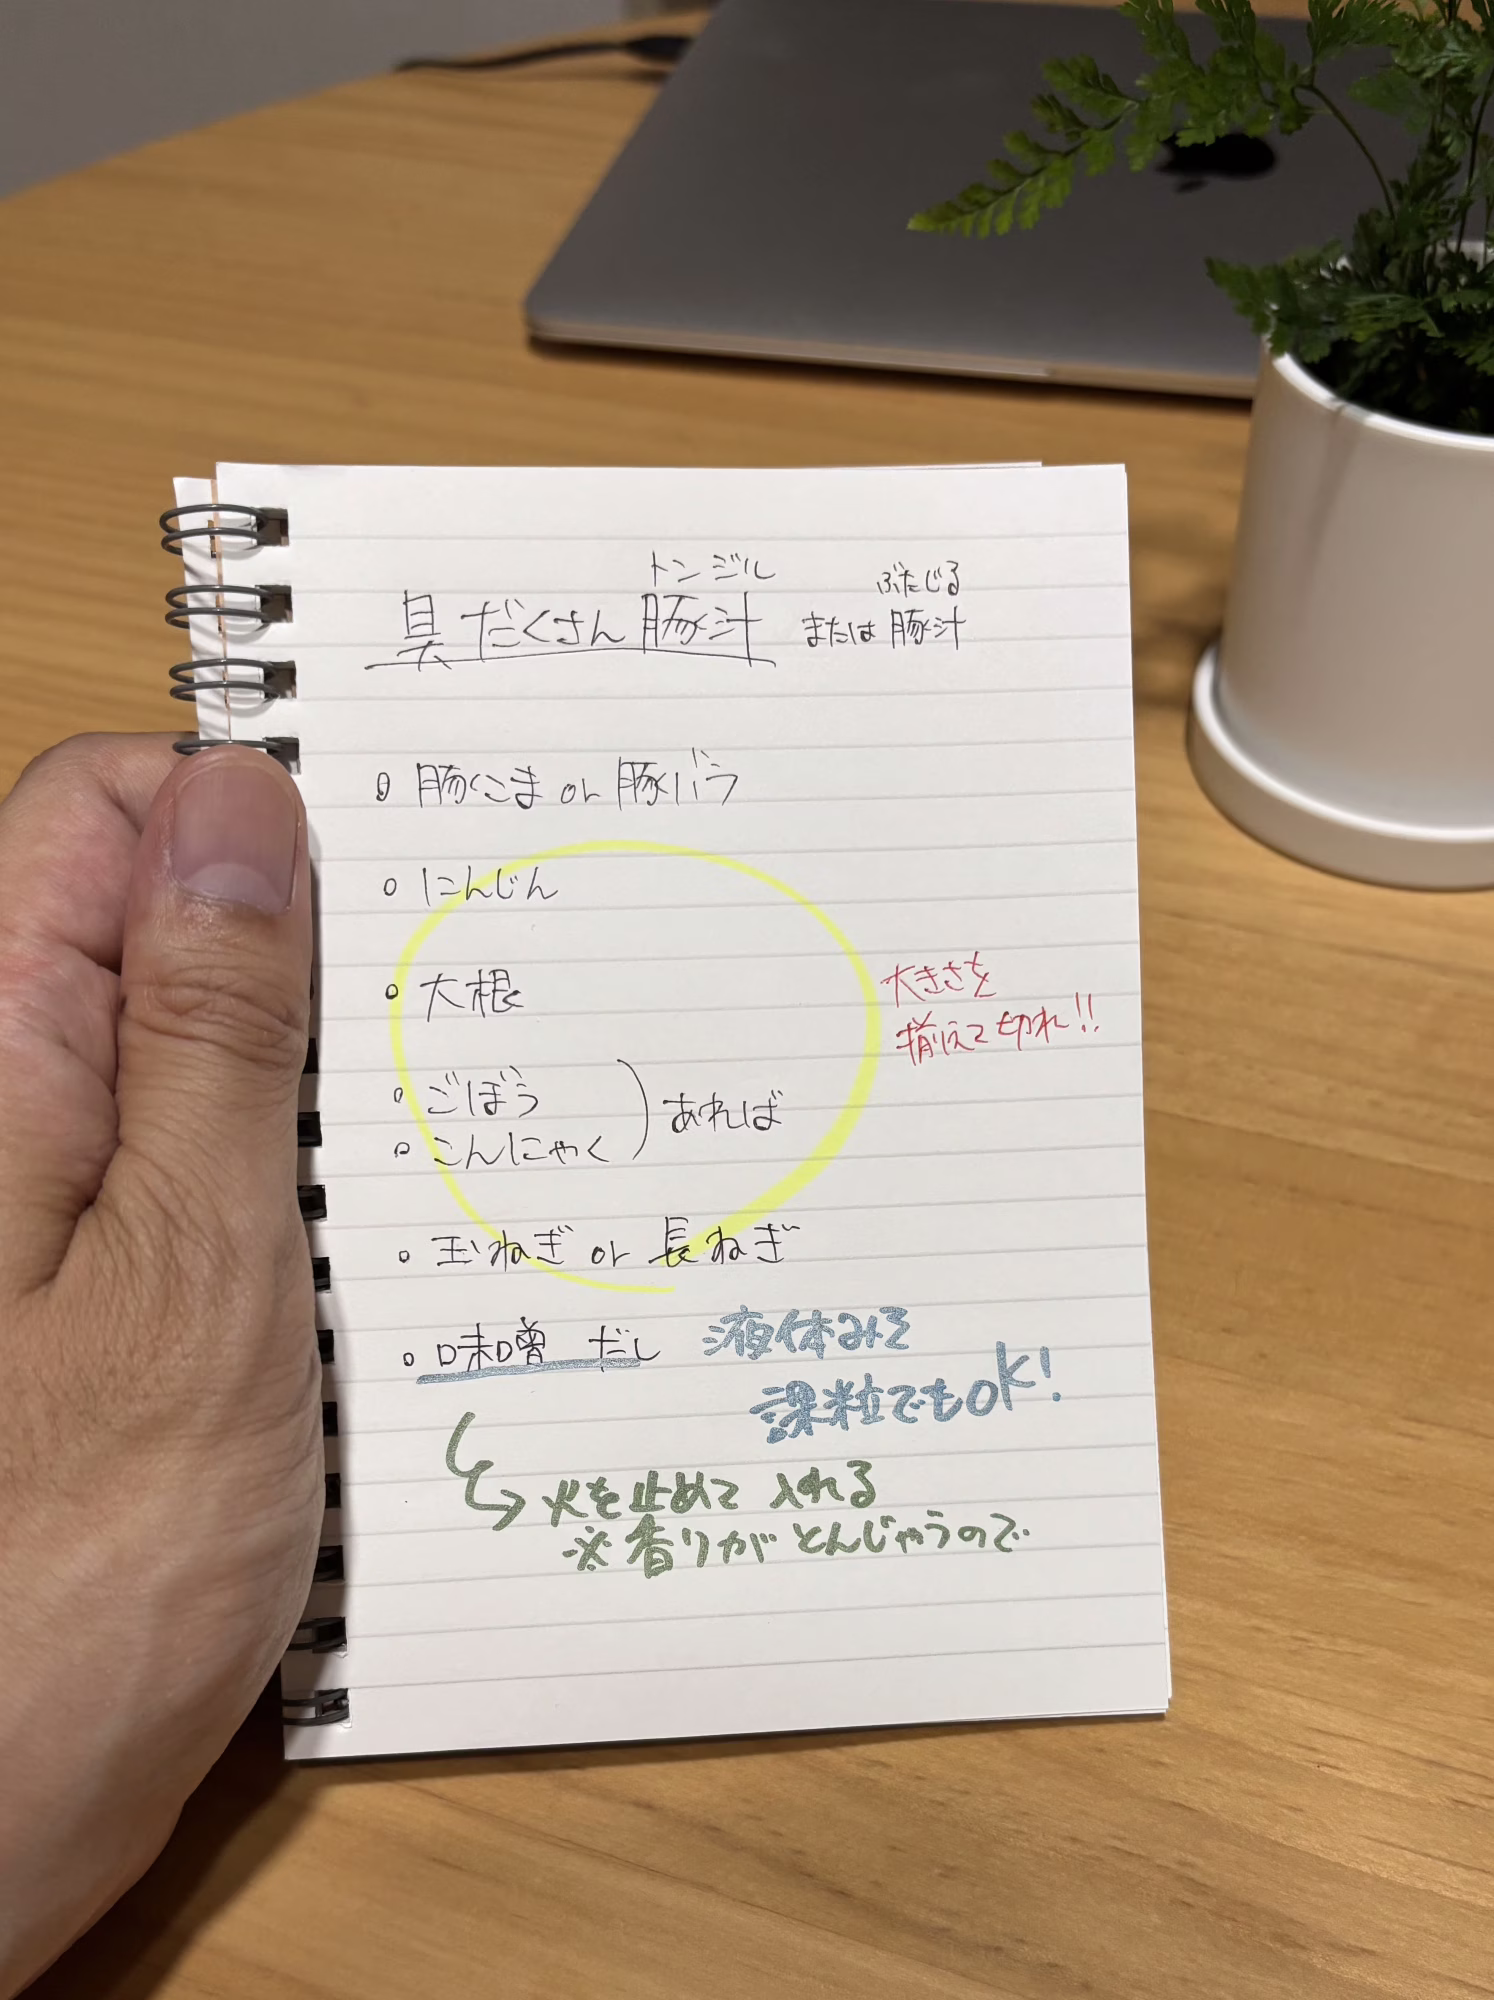 トンジル ぶたじる
具だくさん豚汁 または 豚汁
豚こま or 豚バラ
にんじん
大根
大きさを
揃えて切れ!!
ごぼう
こんにゃく
あれば
玉ねぎ or 長ねぎ
味噌 だし
液体みそ
課粒でもOK!
火を止めて入れる
※香りがとんじゃうので